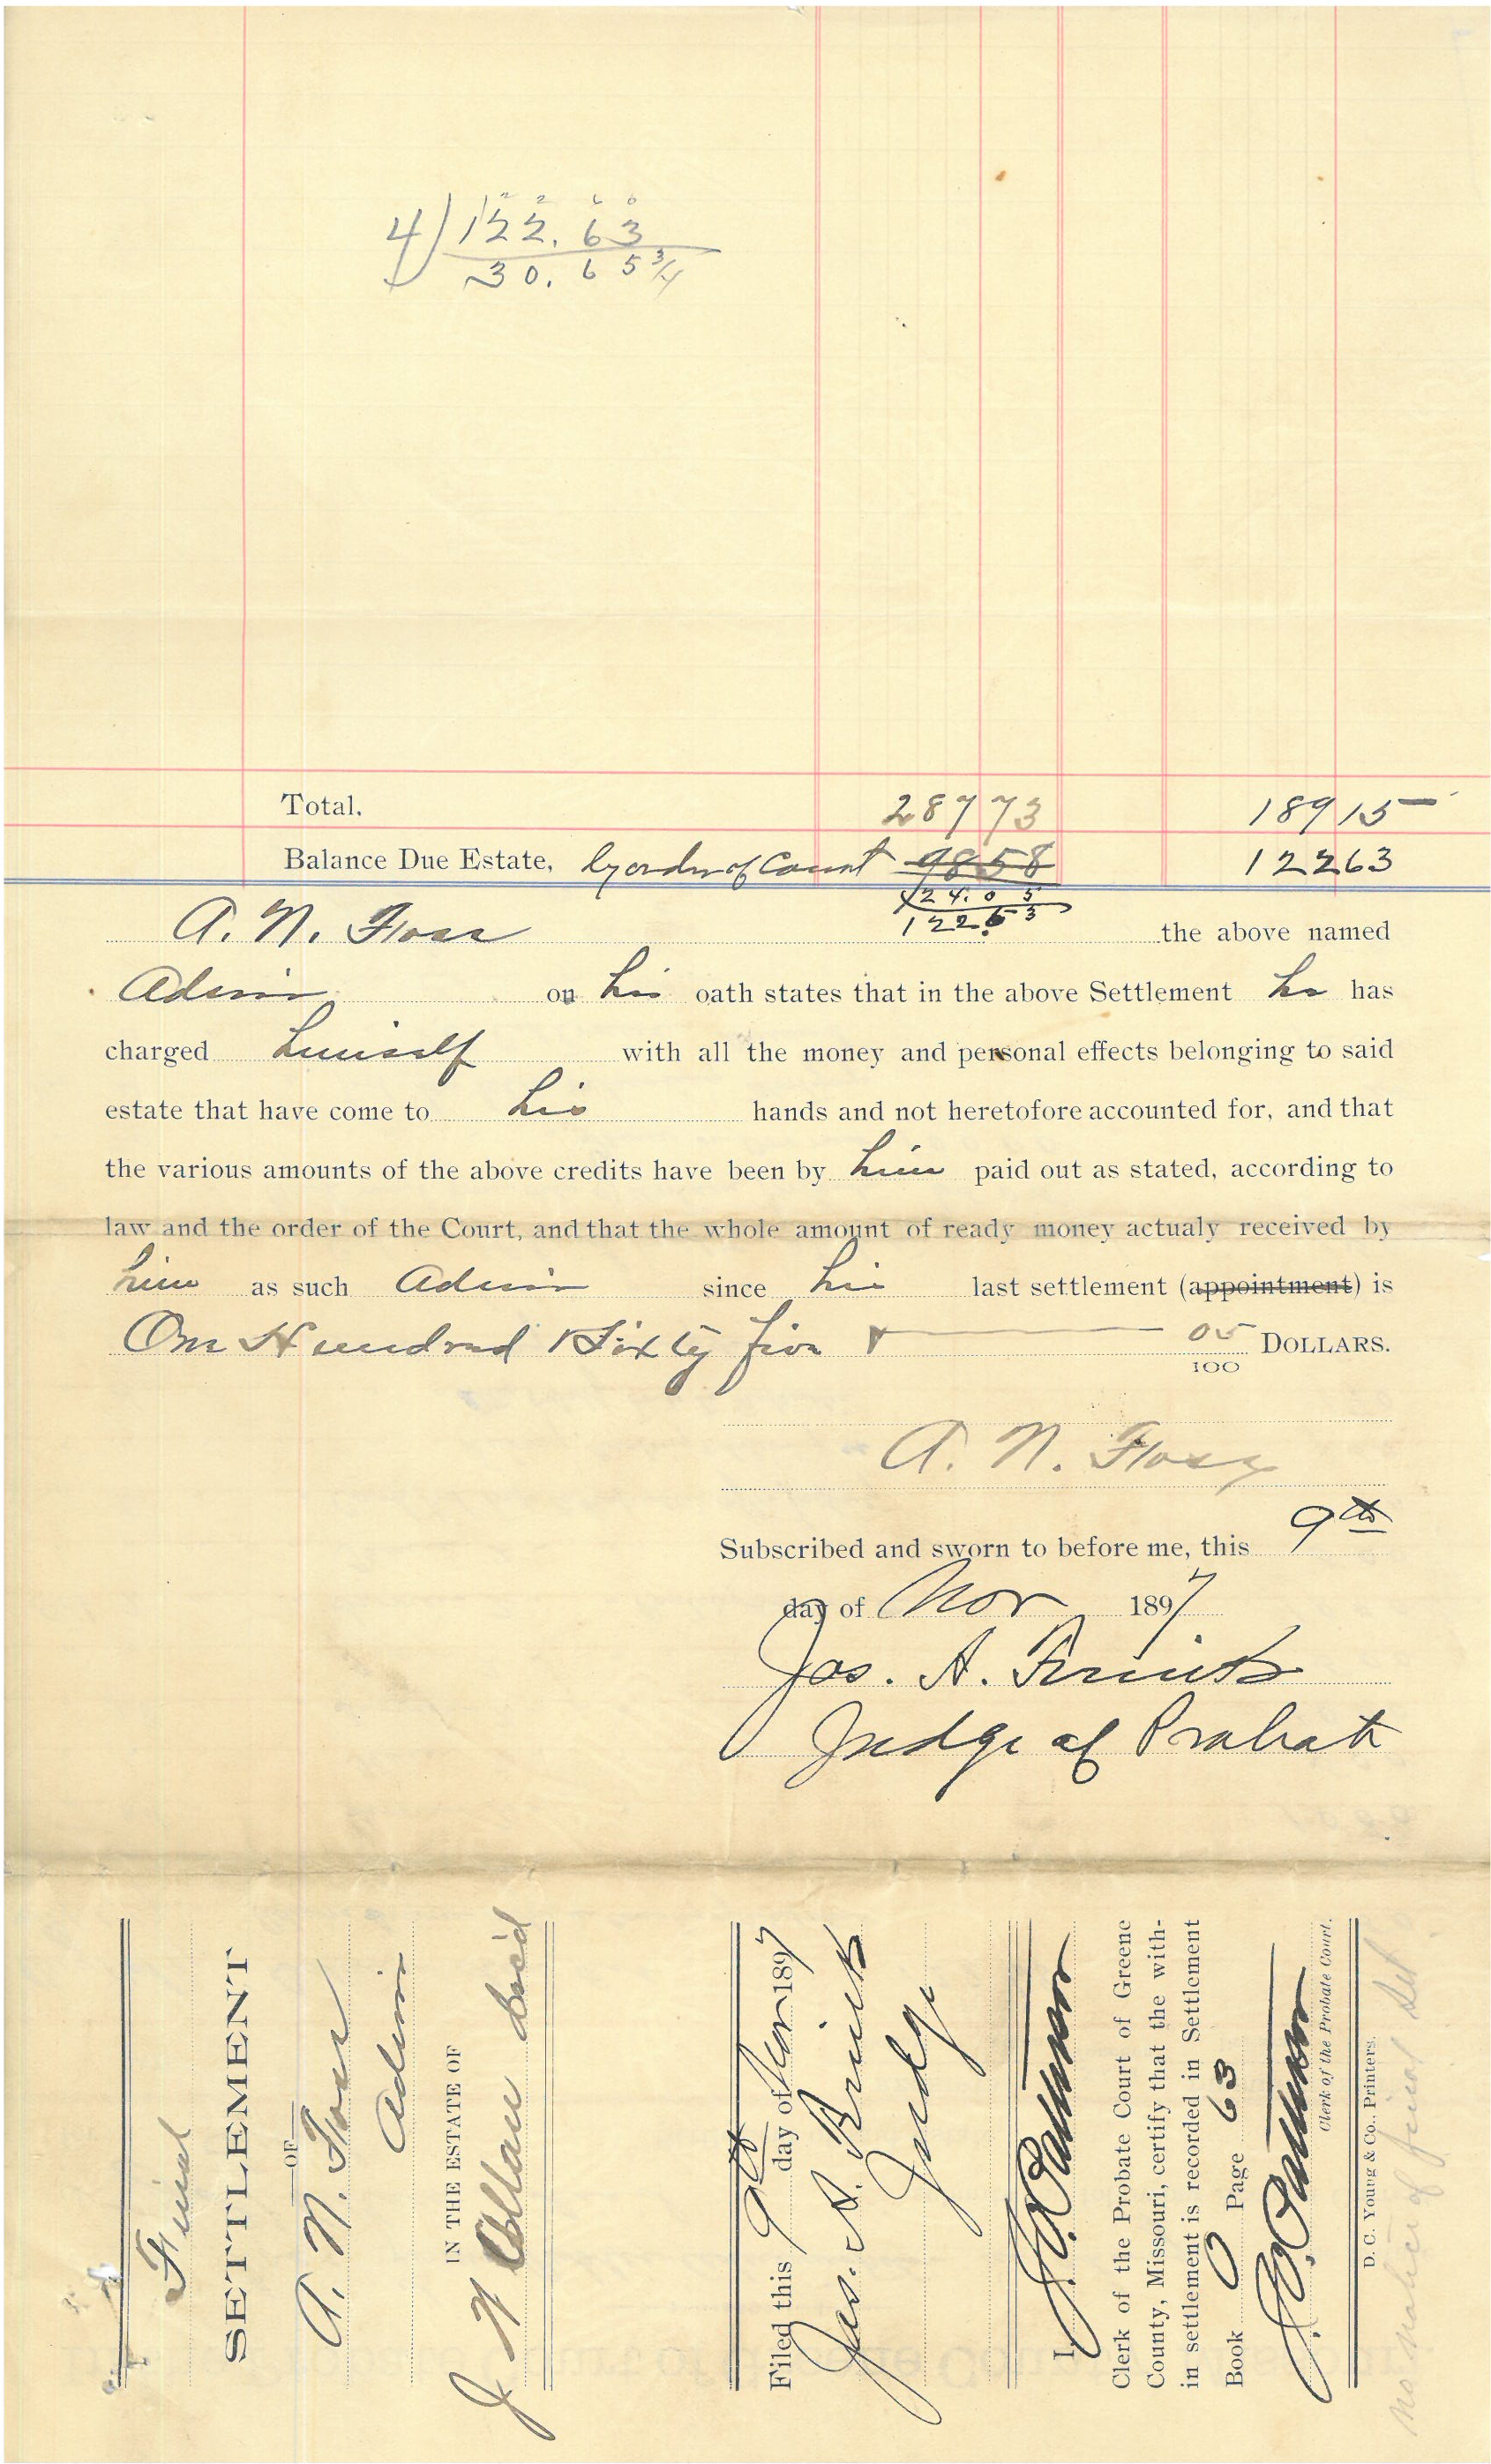 4) 122.63
30.65 3/4
Total, 287 73 189 15
Balance Due Estate, by order of Court 98 58 122 63
24.05
122.63
A. N. the above named
Admr on his oath states that in the above Settlement he has
charged himself with all the money and personal effects belonging to said
estate that have come to his hands and not heretofore accounted for, and that
the various amounts of the above credits have been by him paid out as stated, according to
law and the order of the Court, and that the whole amount of ready money actualy received by
him as such Admr since his last settlement (appointment) is
One Hundred Sixty five & 05/100 DOLLARS.
A. N.
Subscribed and sworn to before me, this 9th
day of Nov 1897
Jos. A.
Judge of Probate
Final
SETTLEMENT
OF
A. N.
Admr
IN THE ESTATE OF
J W Dec'd
Filed this 9th day of Nov 1897
Jos. A.
Judge
I,
Clerk of the Probate Court of Greene
County, Missouri, certify that the with-
in settlement is recorded in Settlement
Book O Page 63
Clerk of the Probate Court.
D. C. Young & Co., Printers.
No notice of final Set